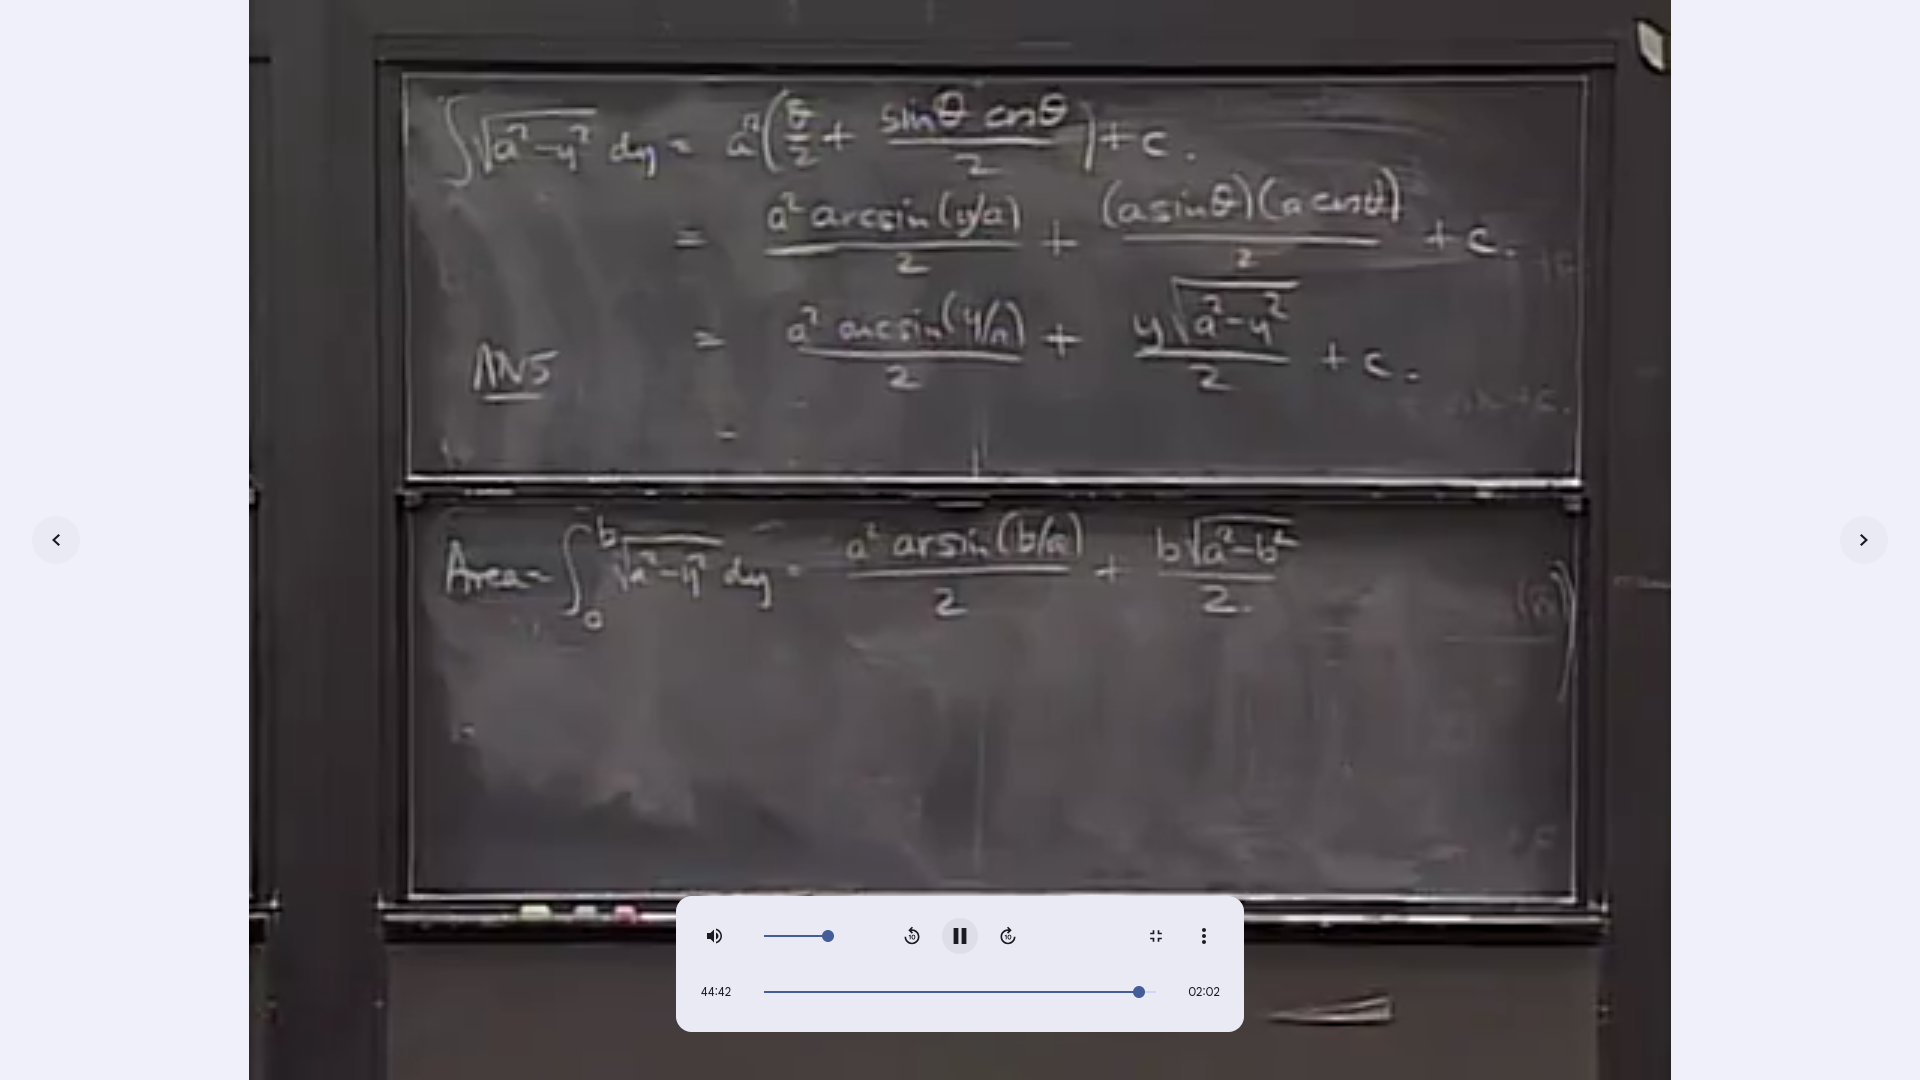 ∫√(a²-y²) dy = a²(θ/2 + sinθ cosθ/2) + c.
= a² arcsin(y/a)/2 + (a sinθ)(a cosθ)/2 + c.
ANS = a² arcsin(y/a)/2 + y√(a²-y²)/2 + c.
Area = ∫₀ᵇ √(a²-y²) dy = a² arsin(b/a)/2 + b√(a²-b²)/2.
10 10
44:42 02:02